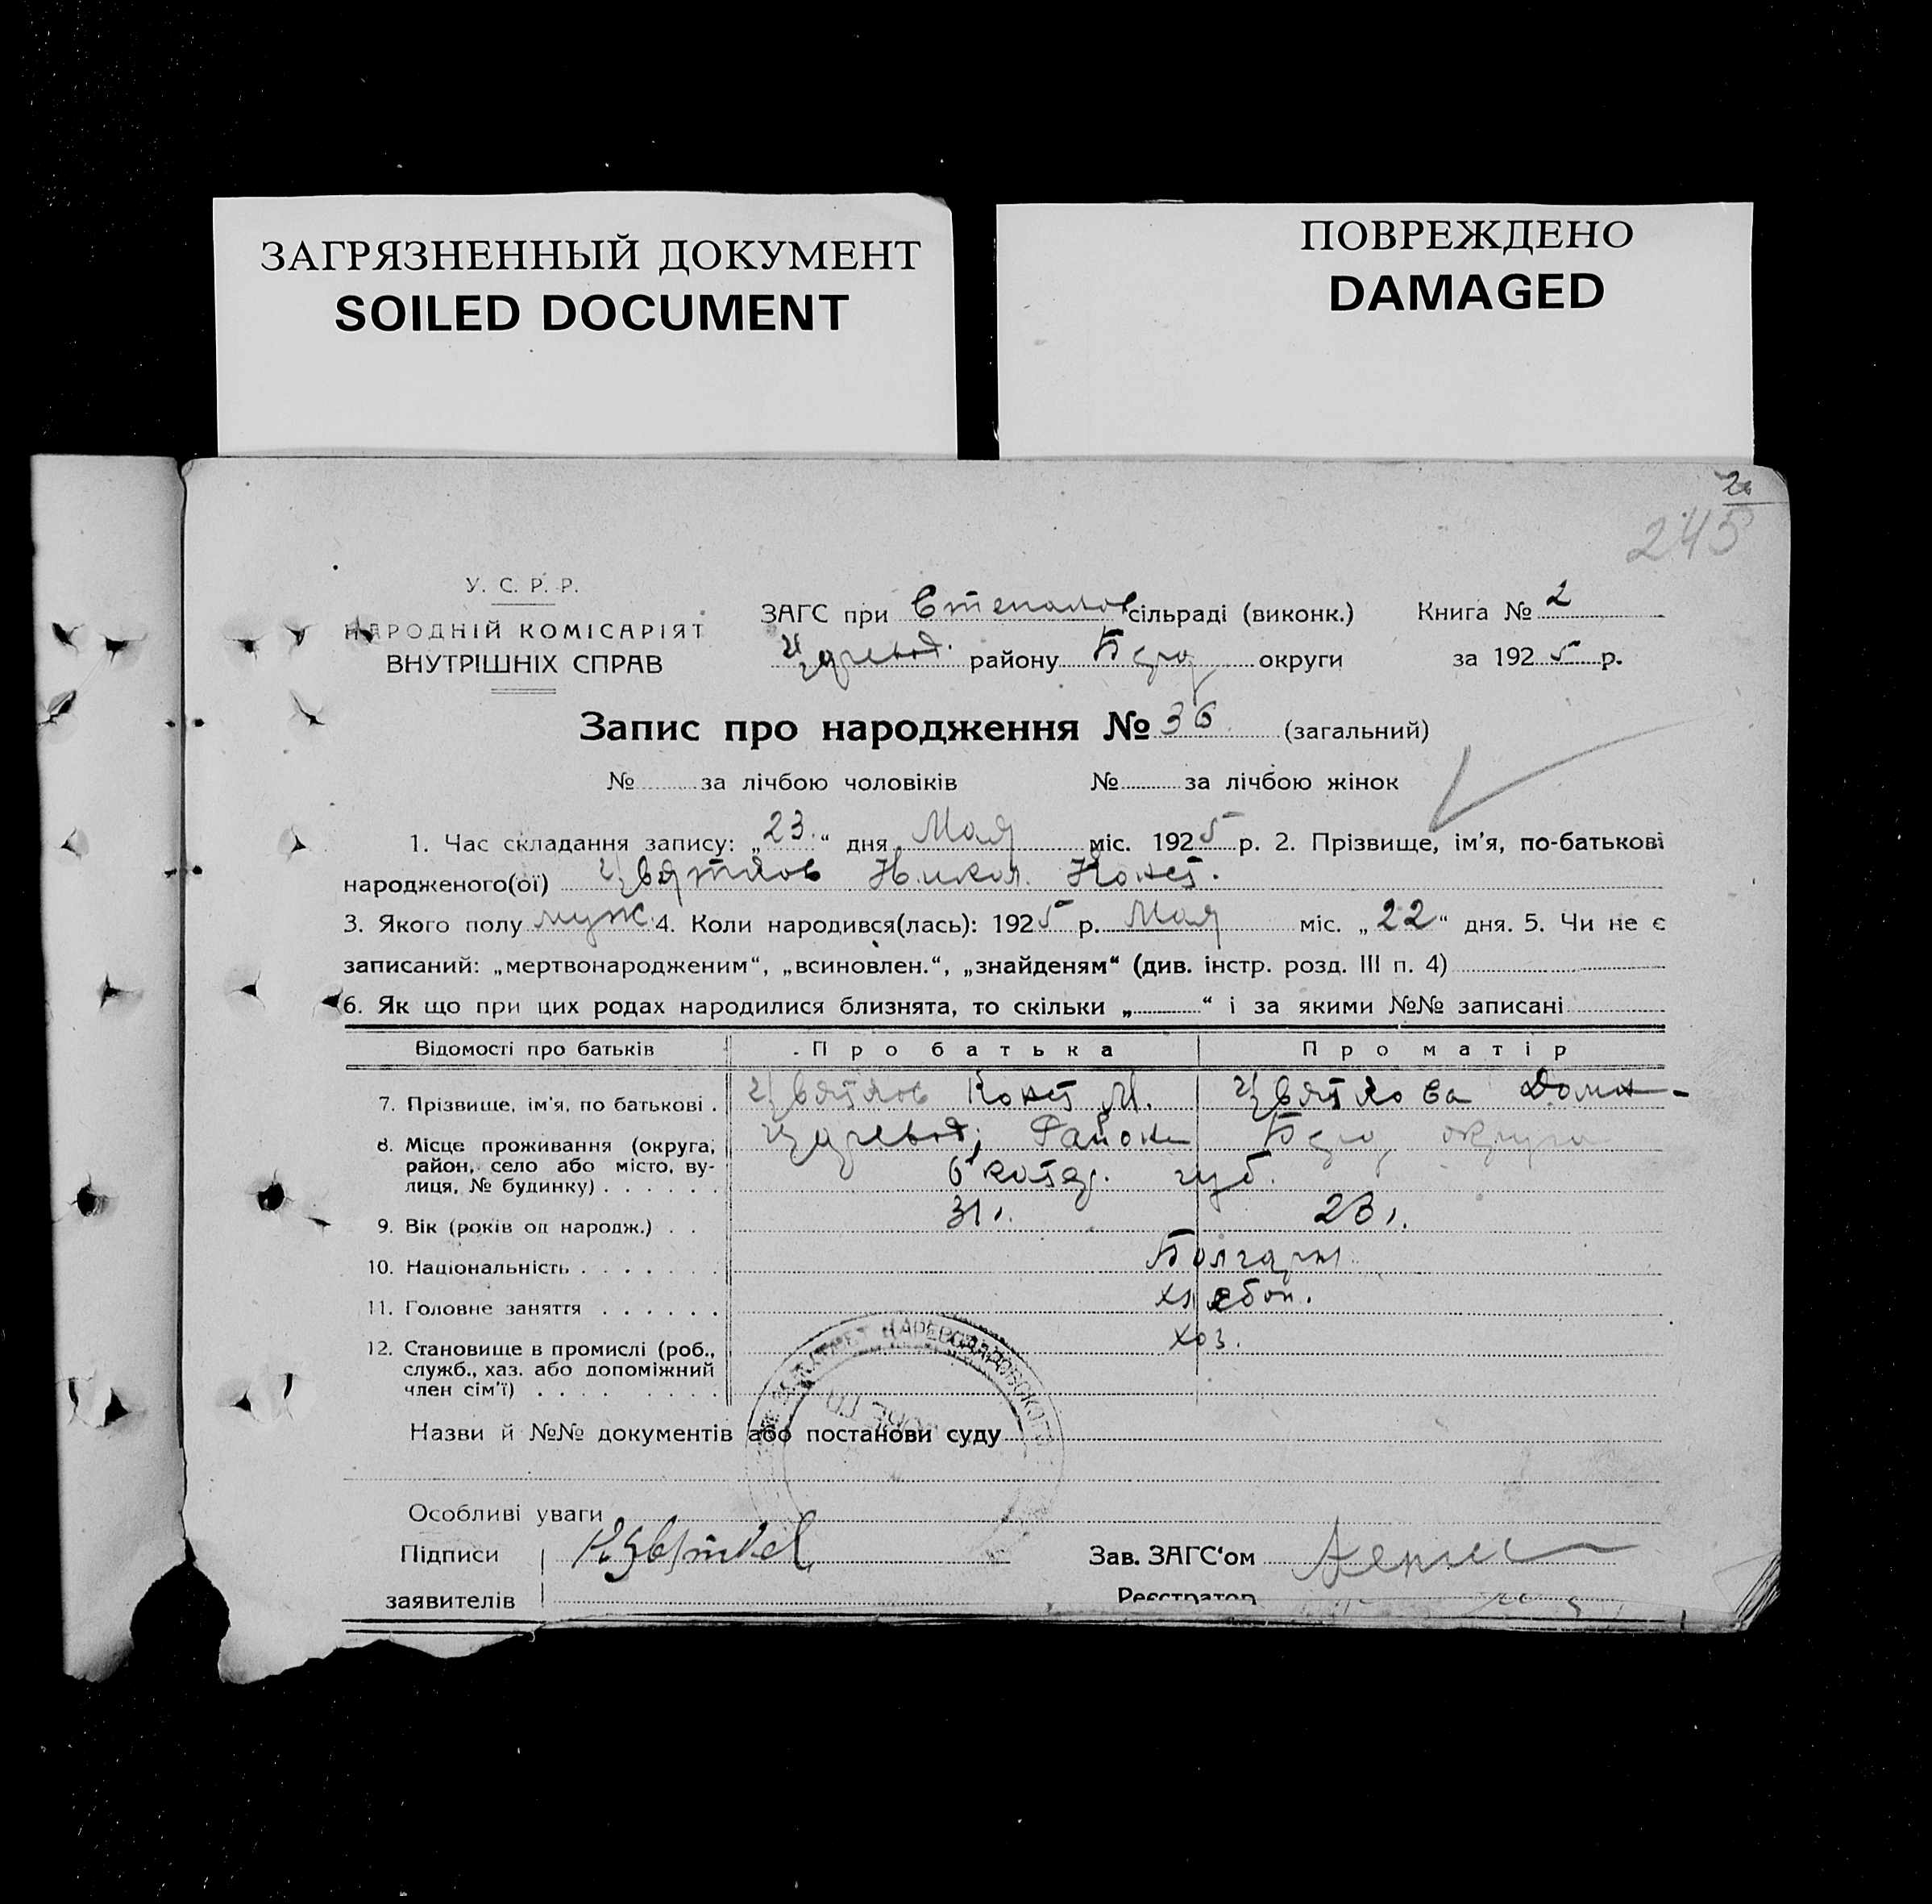 ЗАГРЯЗНЕННЫЙ ДОКУМЕНТ
SOILED DOCUMENT
ПОВРЕЖДЕНО
DAMAGED
245
У. С. Р. Р.
НАРОДНІЙ КОМІСАРІЯТ
ВНУТРІШНІХ СПРАВ
ЗАГС при Степанов сільраді (виконк.) Книга № 2
Царевод. району округи за 1925 р.
Запис про народження № 36 (загальний)
№ за лічбою чоловіків № за лічбою жінок
1. Час складання запису: „23“ дня Мая міс. 1925 р. 2. Прізвище, ім'я, по-батькові
народженого(ої) Цвятков Никол. Конст.
3. Якого полу муж. 4. Коли народився(лась): 1925 р. Мая міс. „22“ дня. 5. Чи не є
записаний: „мертвонародженим“, „всиновлен.“, „знайденям“ (див. інстр. розд. III п. 4)
6. Як що при цих родах народилися близнята, то скільки „ “ і за якими №№ записані
Відомості про батьків Про батька Про матір
7. Прізвище, ім'я, по батькові . Цвятков Конст М. Цвяткова Домн-
8. Місце проживання (округа, Царевод; Района округа
район, село або місто, ву- губ.
лиця, № будинку) . . . . . .
9. Вік (років од народж.) . . 31 23
10. Національність . . . . . . . Болгары
11. Головне заняття . . . . . . хлебоп.
12. Становище в промислі (роб., хоз.
служб., хаз. або допоміжний
член сім'ї) . . . . . . . . .
ЦАРЕВОДАРОВСКОГО
Назви й №№ документів або постанови суду
Особливі уваги
Підписи К Цвятков Зав. ЗАГС'ом
заявителів Реєстратор